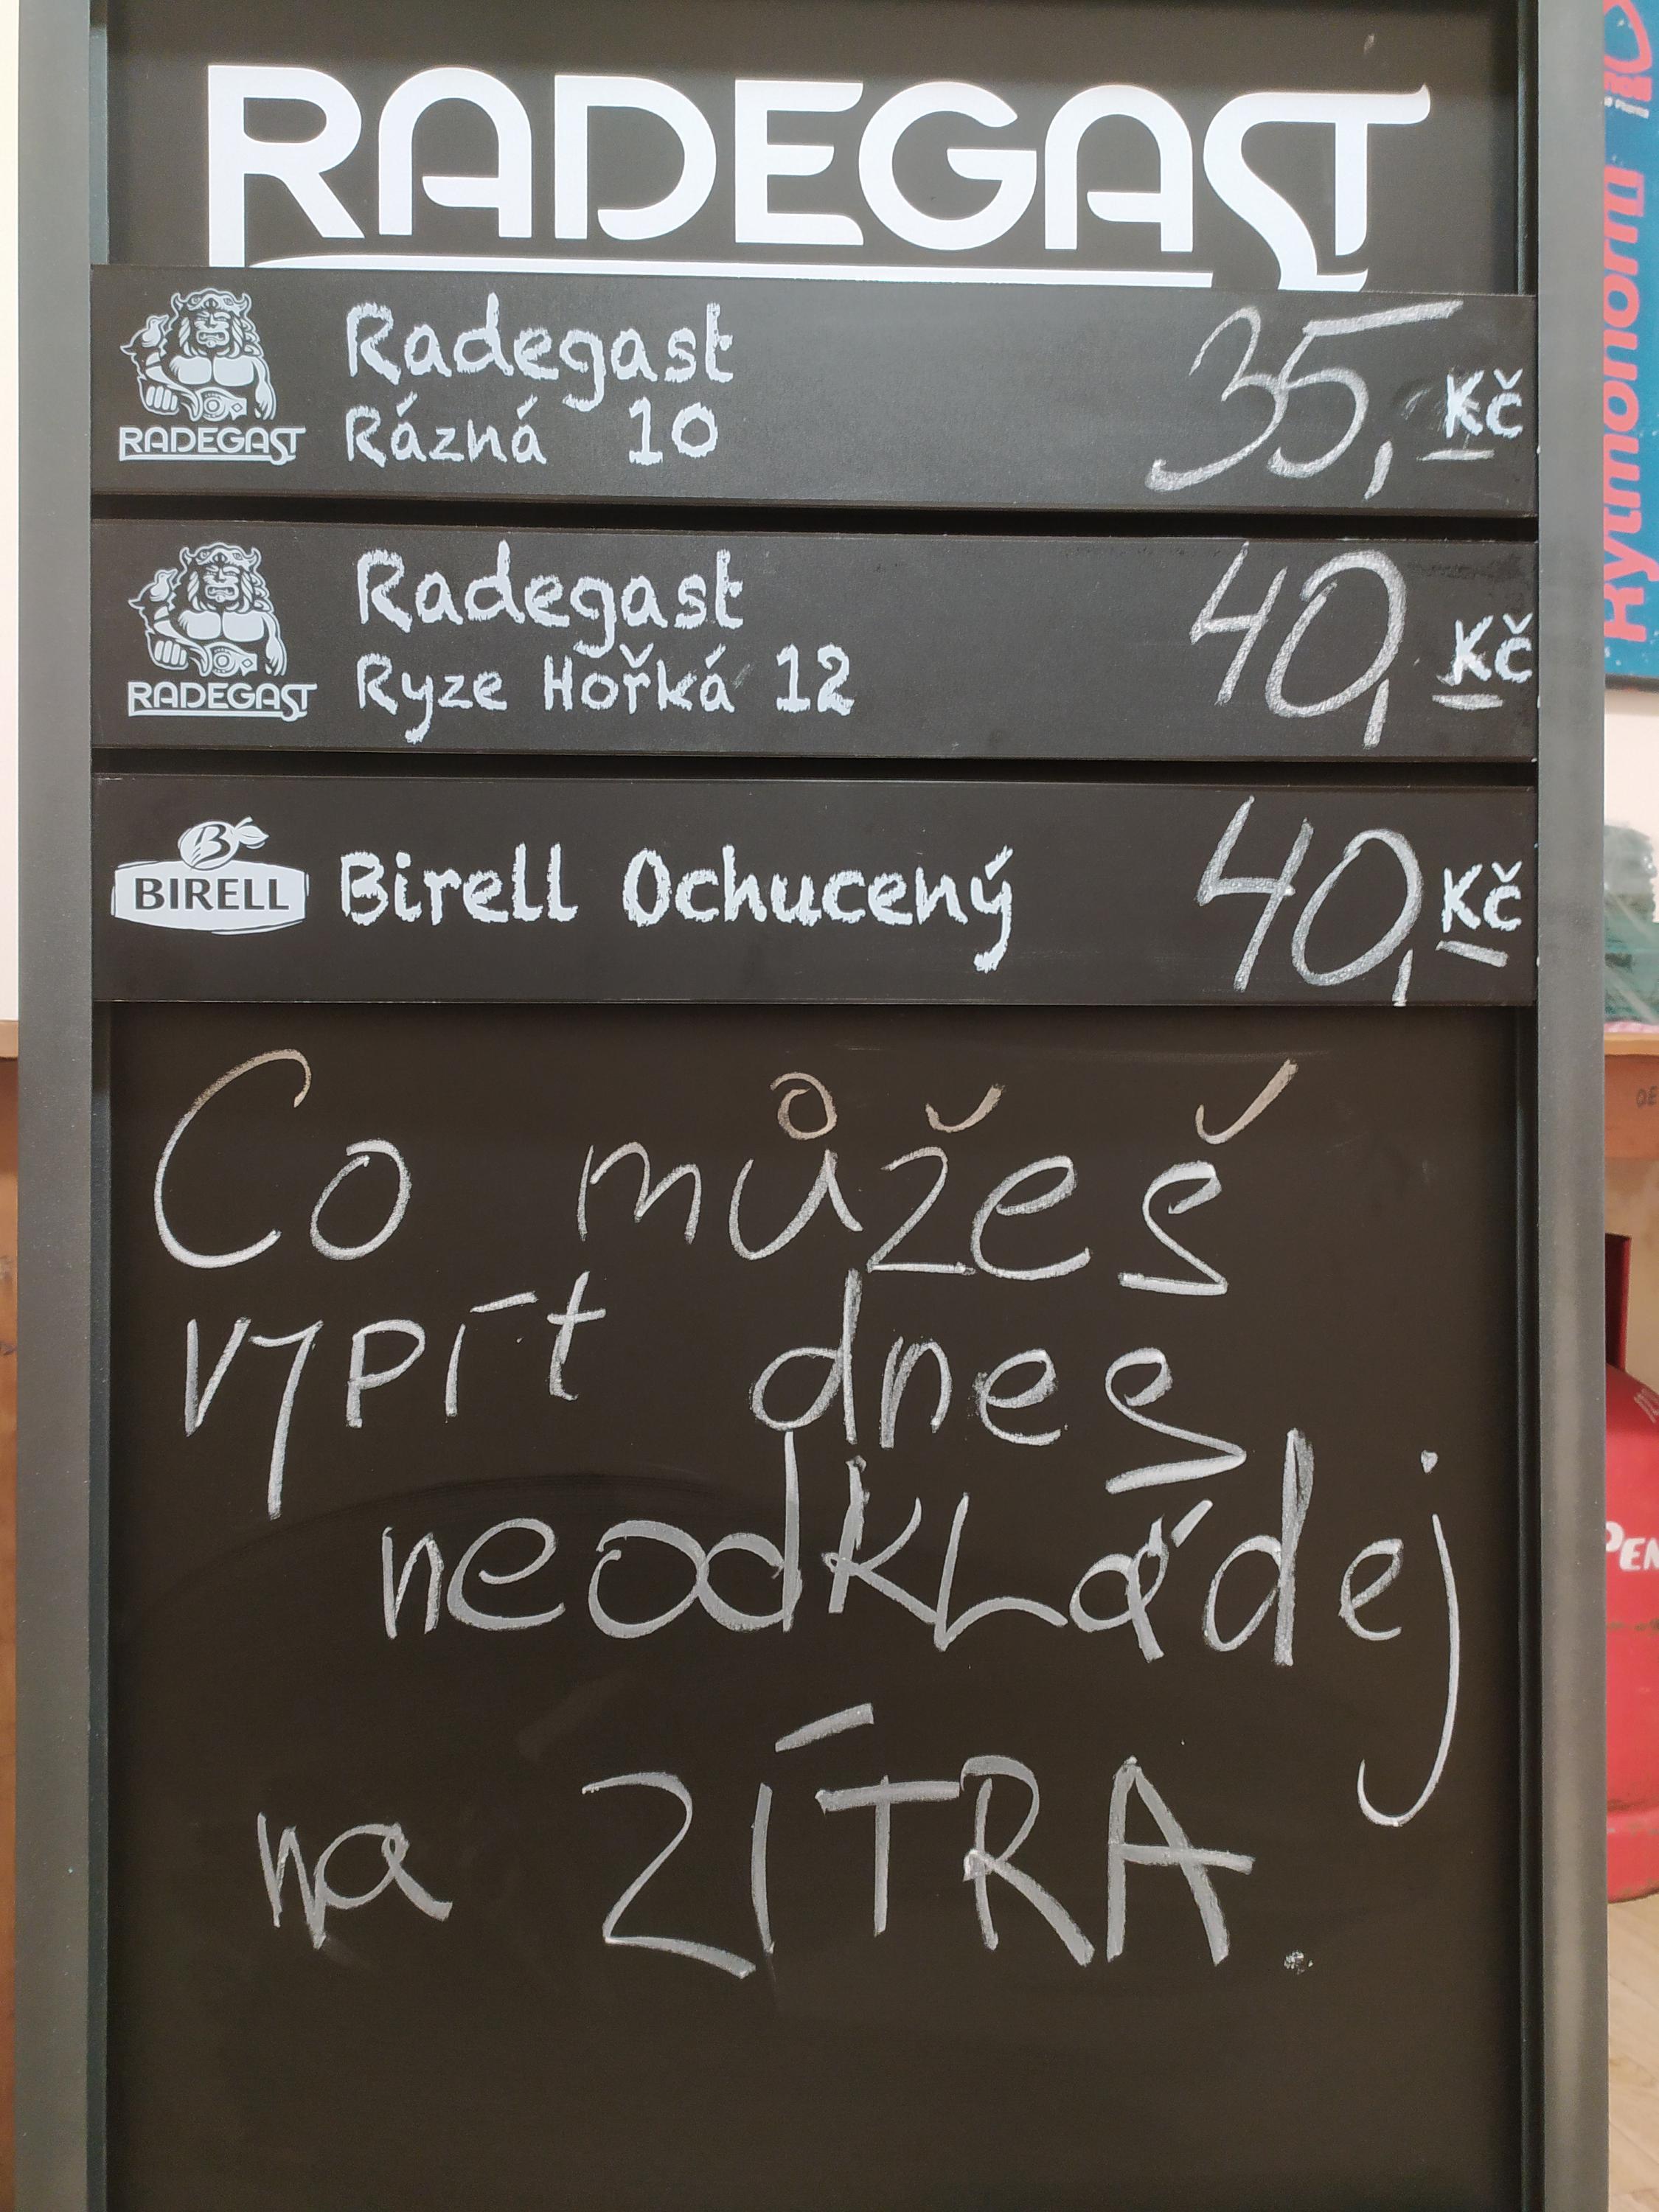 RADEGAST
RADEGAST
Radegast
Rázná 10
35,- Kč
RADEGAST
Radegast
Ryze Hořká 12
40,- Kč
BIRELL
Birell Ochucený
40,- Kč
Co můžeš
vypít dnes
neodkládej
na ZÍTRA.
Rytmonorm
PEN